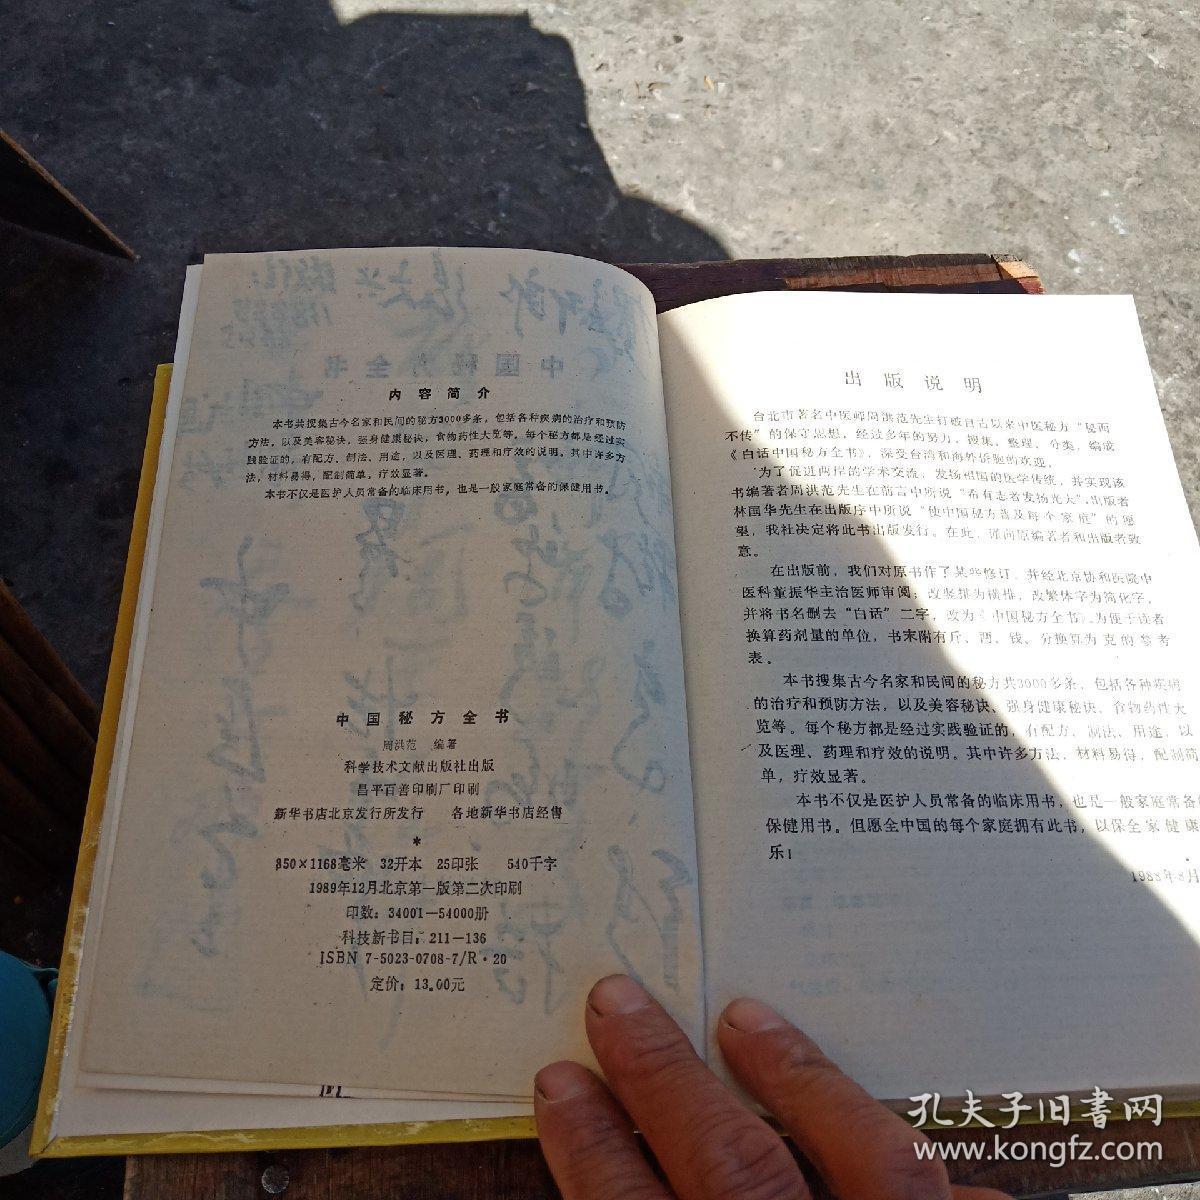 内容简介
本书共搜集古今名家和民间的秘方3000多条，包括各种疾病的治疗和预防
方法，以及美容秘诀，强身健康秘诀，食物药性大览等。每个秘方都是经过实
践验证的，有配方、制法、用途，以及医理、药理和疗效的说明。其中许多方
法，材料易得，配制简单，疗效显著。
本书不仅是医护人员常备的临床用书，也是一般家庭常备的保健用书。
中国秘方全书
周洪范 编著
科学技术文献出版社出版
昌平百善印刷厂印刷
新华书店北京发行所发行 各地新华书店经售
*
850×1168毫米 32开本 25印张 540千字
1989年12月北京第一版第二次印刷
印数：34001—54000册
科技新书目：211—136
ISBN 7-5023-0708-7/R·20
定价：13.00元
出版说明
台北市著名中医师周洪范先生打破自古以来中医秘方“秘而
不传”的保守思想，经过多年的努力，搜集、整理、分类，编成
《白话中国秘方全书》，深受台湾和海外侨胞的欢迎。
为了促进两岸的学术交流，发扬祖国的医学传统，并实现该
书编著者周洪范先生在前言中所说“希有志者发扬光大”，出版者
林国华先生在出版序中所说“使中国秘方普及每个家庭”的愿
望，我社决定将此书出版发行。在此，谨向原编著者和出版者致
意。
在出版前，我们对原书作了某些修订，并经北京协和医院中
医科董振华主治医师审阅；改竖排为横排，改繁体字为简化字，
并将书名删去“白话”二字，改为《中国秘方全书》。为便于读者
换算药剂量的单位，书末附有斤、两、钱、分换算为克的参考
表。
本书搜集古今名家和民间的秘方共3000多条，包括各种疾病
的治疗和预防方法，以及美容秘诀、强身健康秘诀、食物药性大
览等。每个秘方都是经过实践验证的，有配方、制法、用途，以
及医理、药理和疗效的说明。其中许多方法，材料易得，配制简
单，疗效显著。
本书不仅是医护人员常备的临床用书，也是一般家庭常备的
保健用书。但愿全中国的每个家庭拥有此书，以保全家健康
乐！
1988年8月
孔夫子旧书网
www.kongfz.com